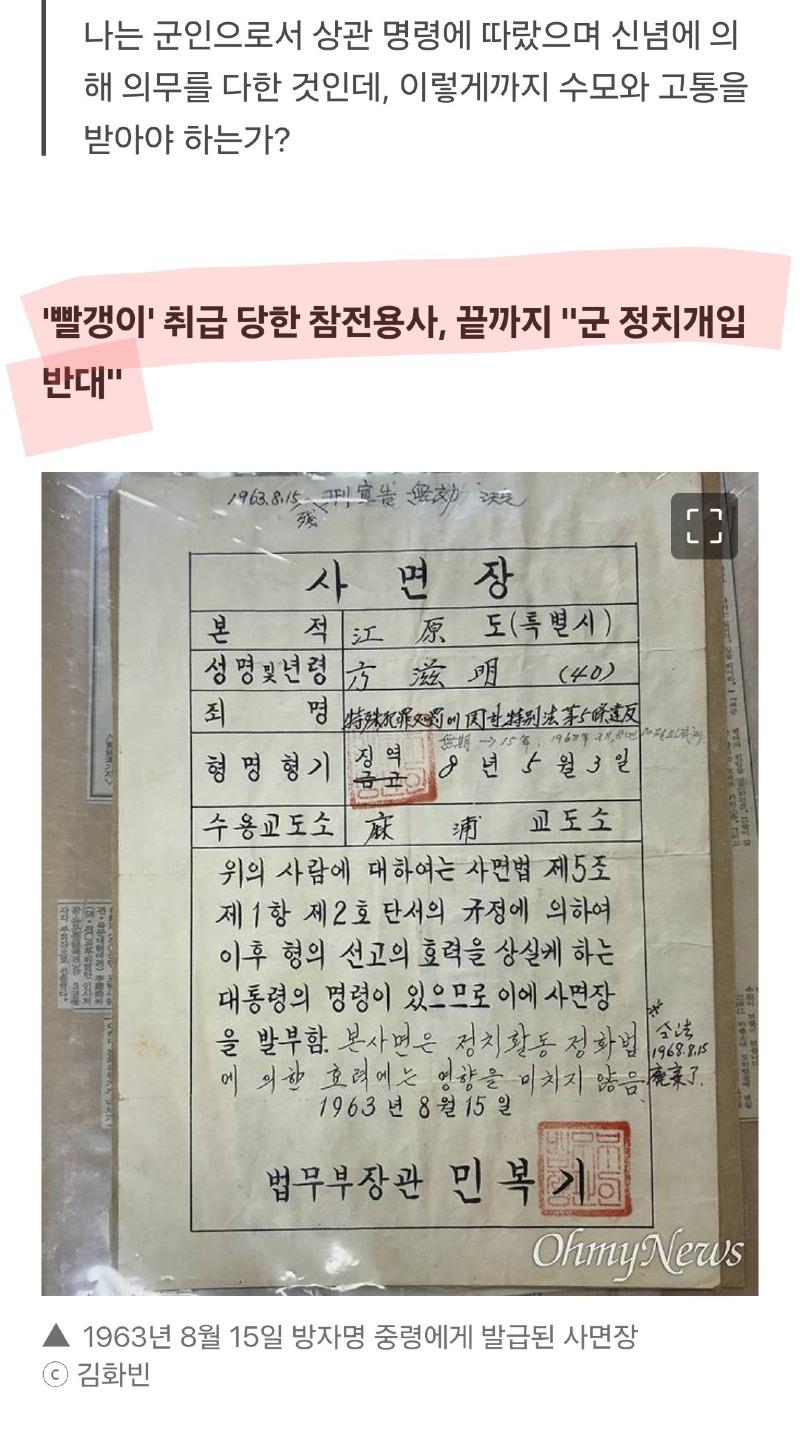 나는 군인으로서 상관 명령에 따랐으며 신념에 의
해 의무를 다한 것인데, 이렇게까지 수모와 고통을
받아야 하는가?
'빨갱이' 취급 당한 참전용사, 끝까지 "군 정치개입
반대"
1963.8.15 刑宣告 無効 决定
残
사 면 장
본 적 江 原 도(특별시)
성명및년령 方 滋 明 (40)
죄 명 特殊犯罪処罰에 関한 特別法 第5條違反
無期 → 15年,
형명형기 징역 8년 5월 3일
금고
수용교도소 麻 浦 교도소
위의 사람에 대하여는 사면법 제5조
제1항 제2호 단서의 규정에 의하여
이후 형의 선고의 효력을 상실케 하는
대통령의 명령이 있으므로 이에 사면장
을 발부함. 본사면은 정치활동 정화법
에 의한 효력에는 영향을 미치지 않음.
※ 仝法
1968.8.15
廃棄了.
1963년 8월 15일
법무부장관 민복기
OhmyNews
▲ 1963년 8월 15일 방자명 중령에게 발급된 사면장
ⓒ 김화빈